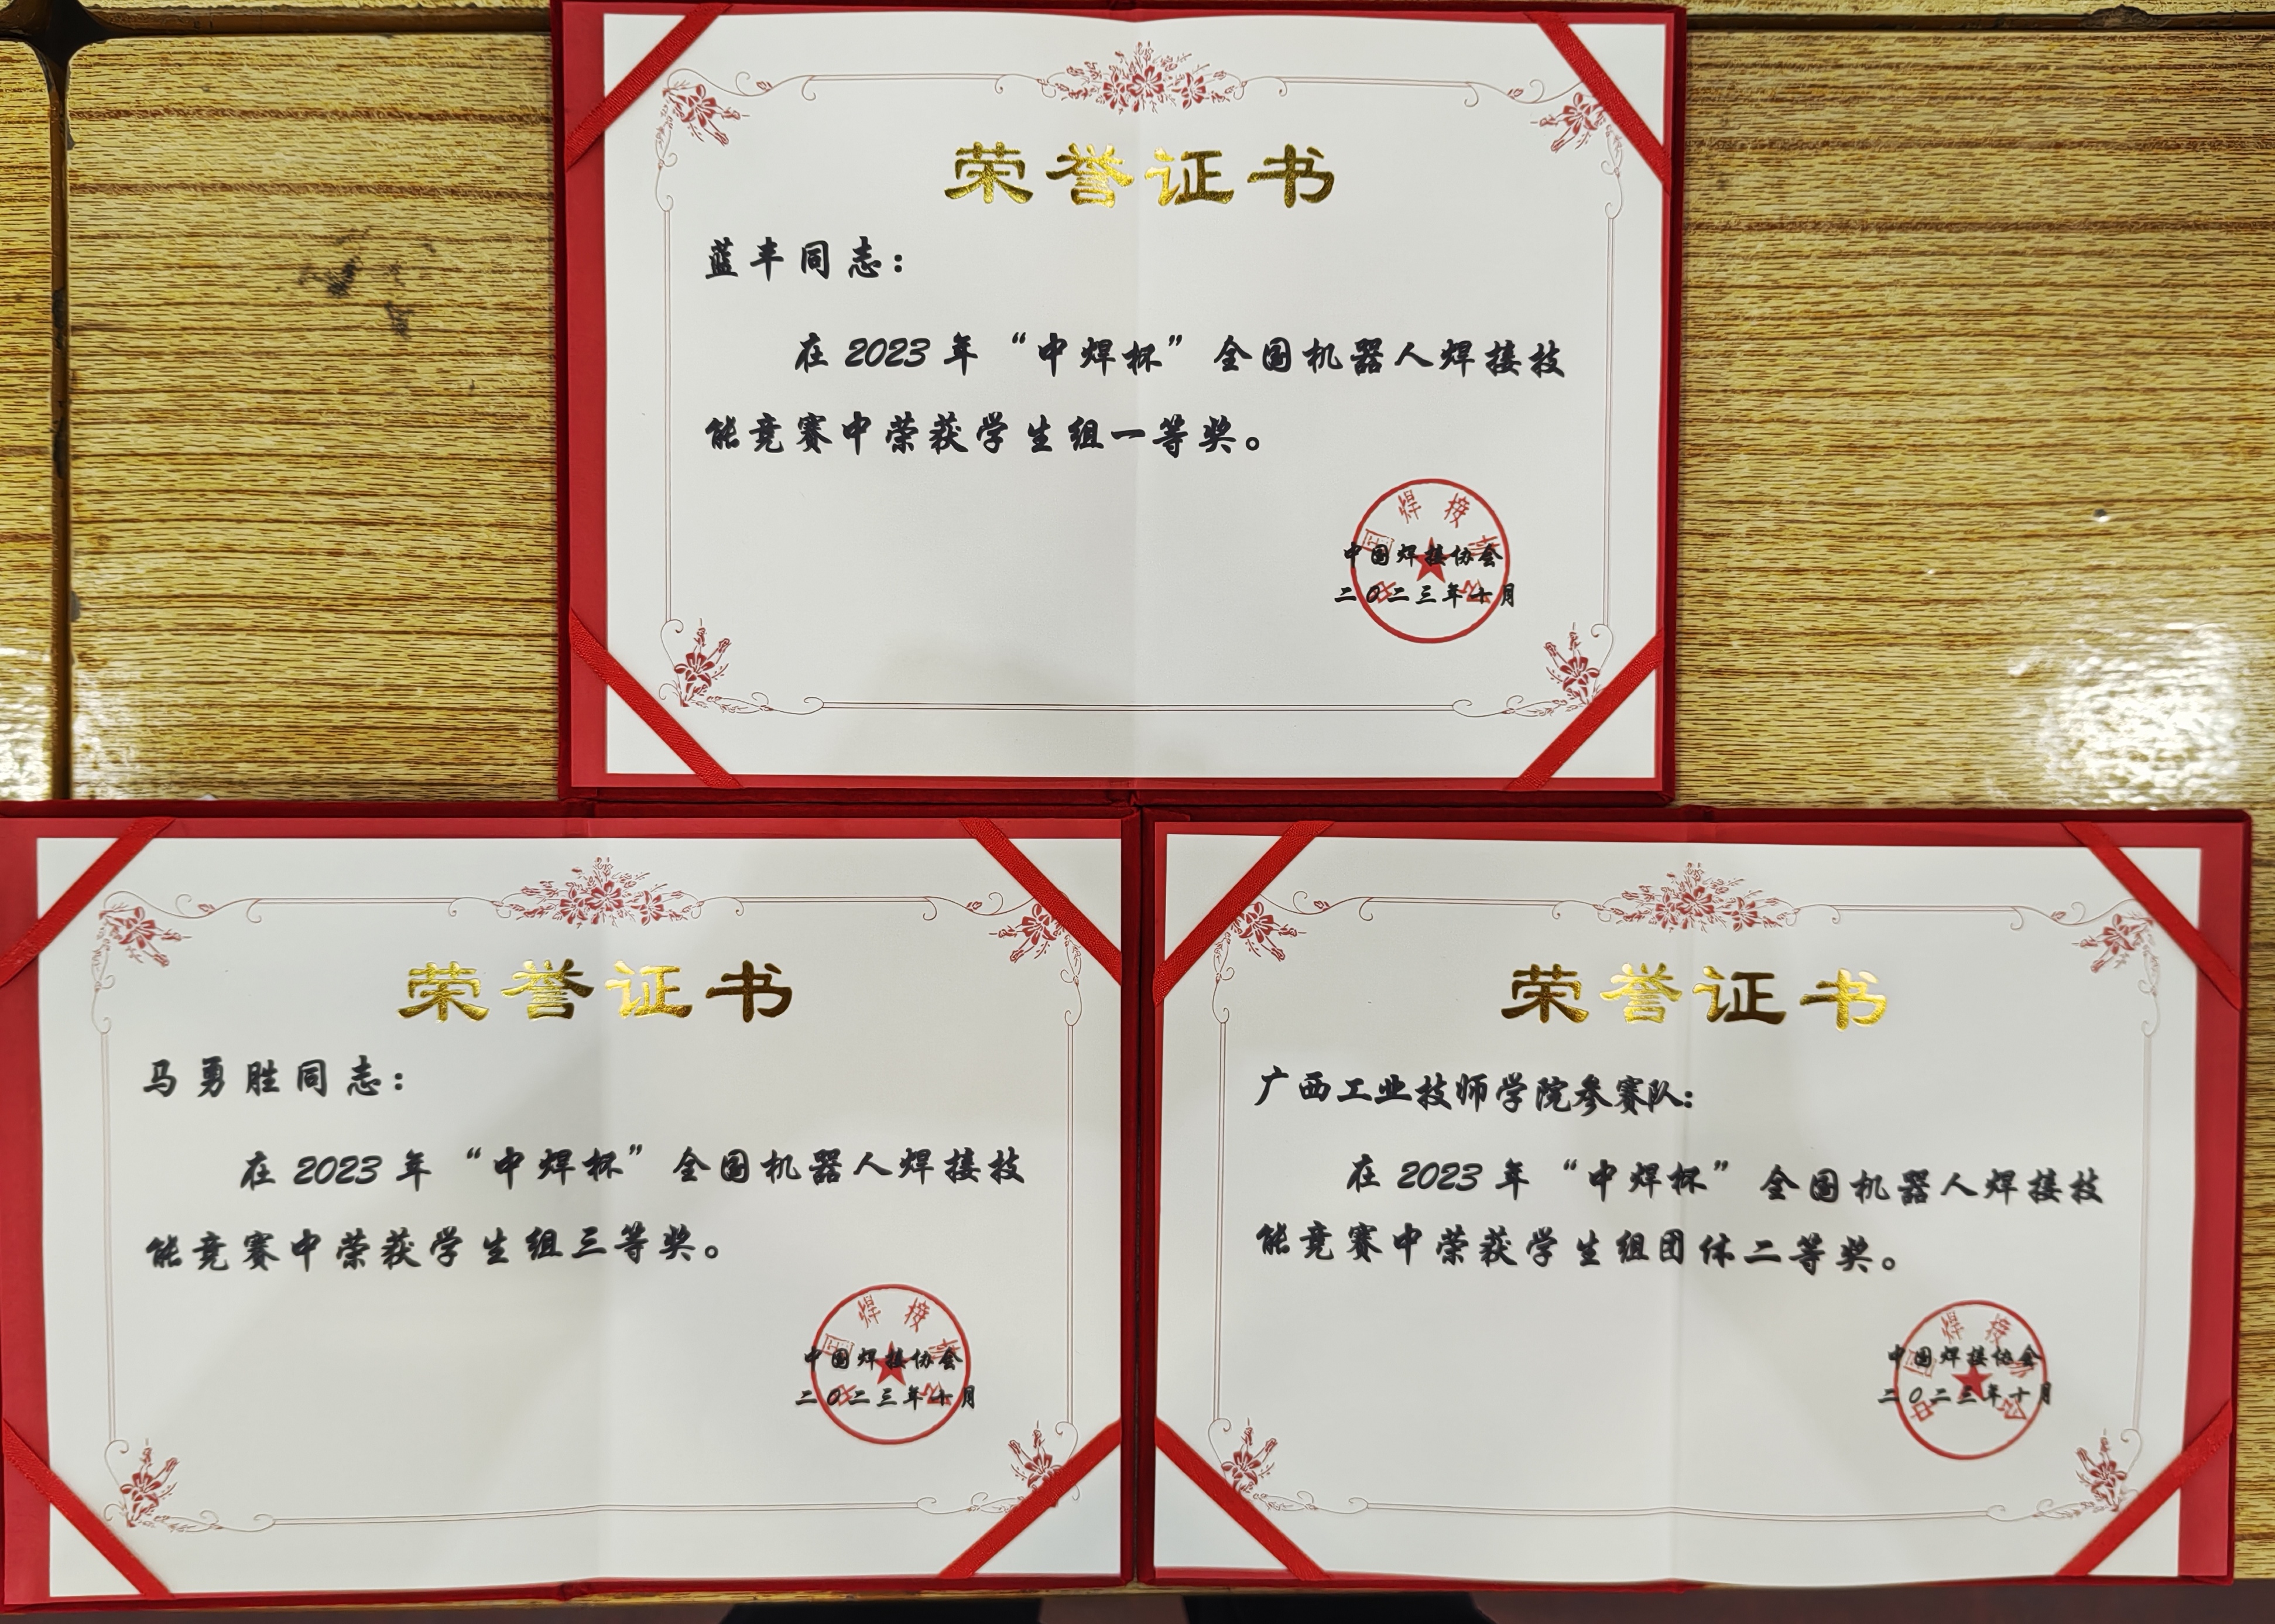 荣誉证书
蓝丰同志：
在2023年“中焊杯”全国机器人焊接技
能竞赛中荣获学生组一等奖。
中国焊接协会
二〇二三年十月
荣誉证书
马勇胜同志：
在2023年“中焊杯”全国机器人焊接技
能竞赛中荣获学生组三等奖。
中国焊接协会
二〇二三年十月
荣誉证书
广西工业技师学院参赛队：
在2023年“中焊杯”全国机器人焊接技
能竞赛中荣获学生组团体二等奖。
中国焊接协会
二〇二三年十月